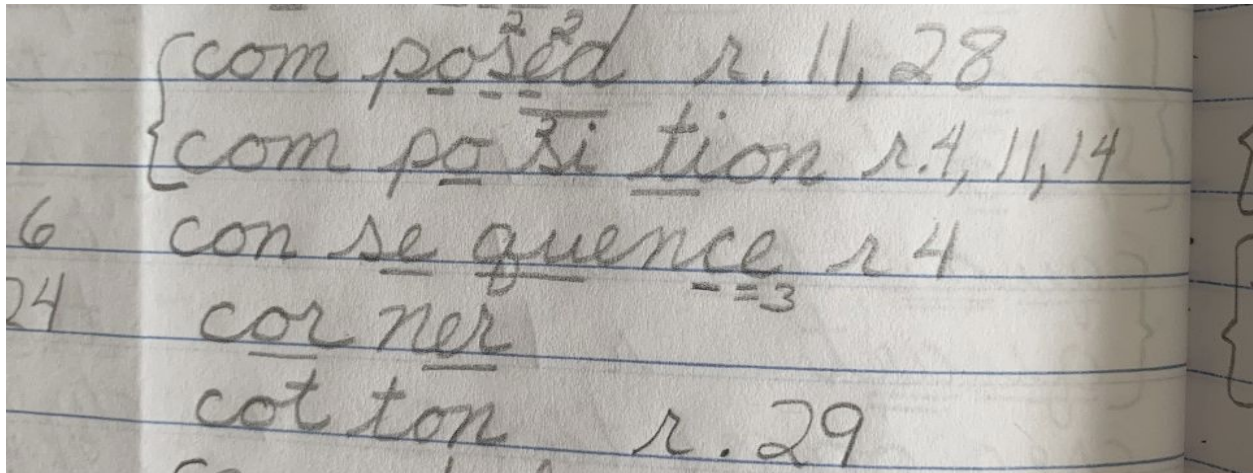 com posed r. 11, 28
com po si tion r. 4, 11, 14
6 con se quence r 4
24 cor ner
cot ton r. 29